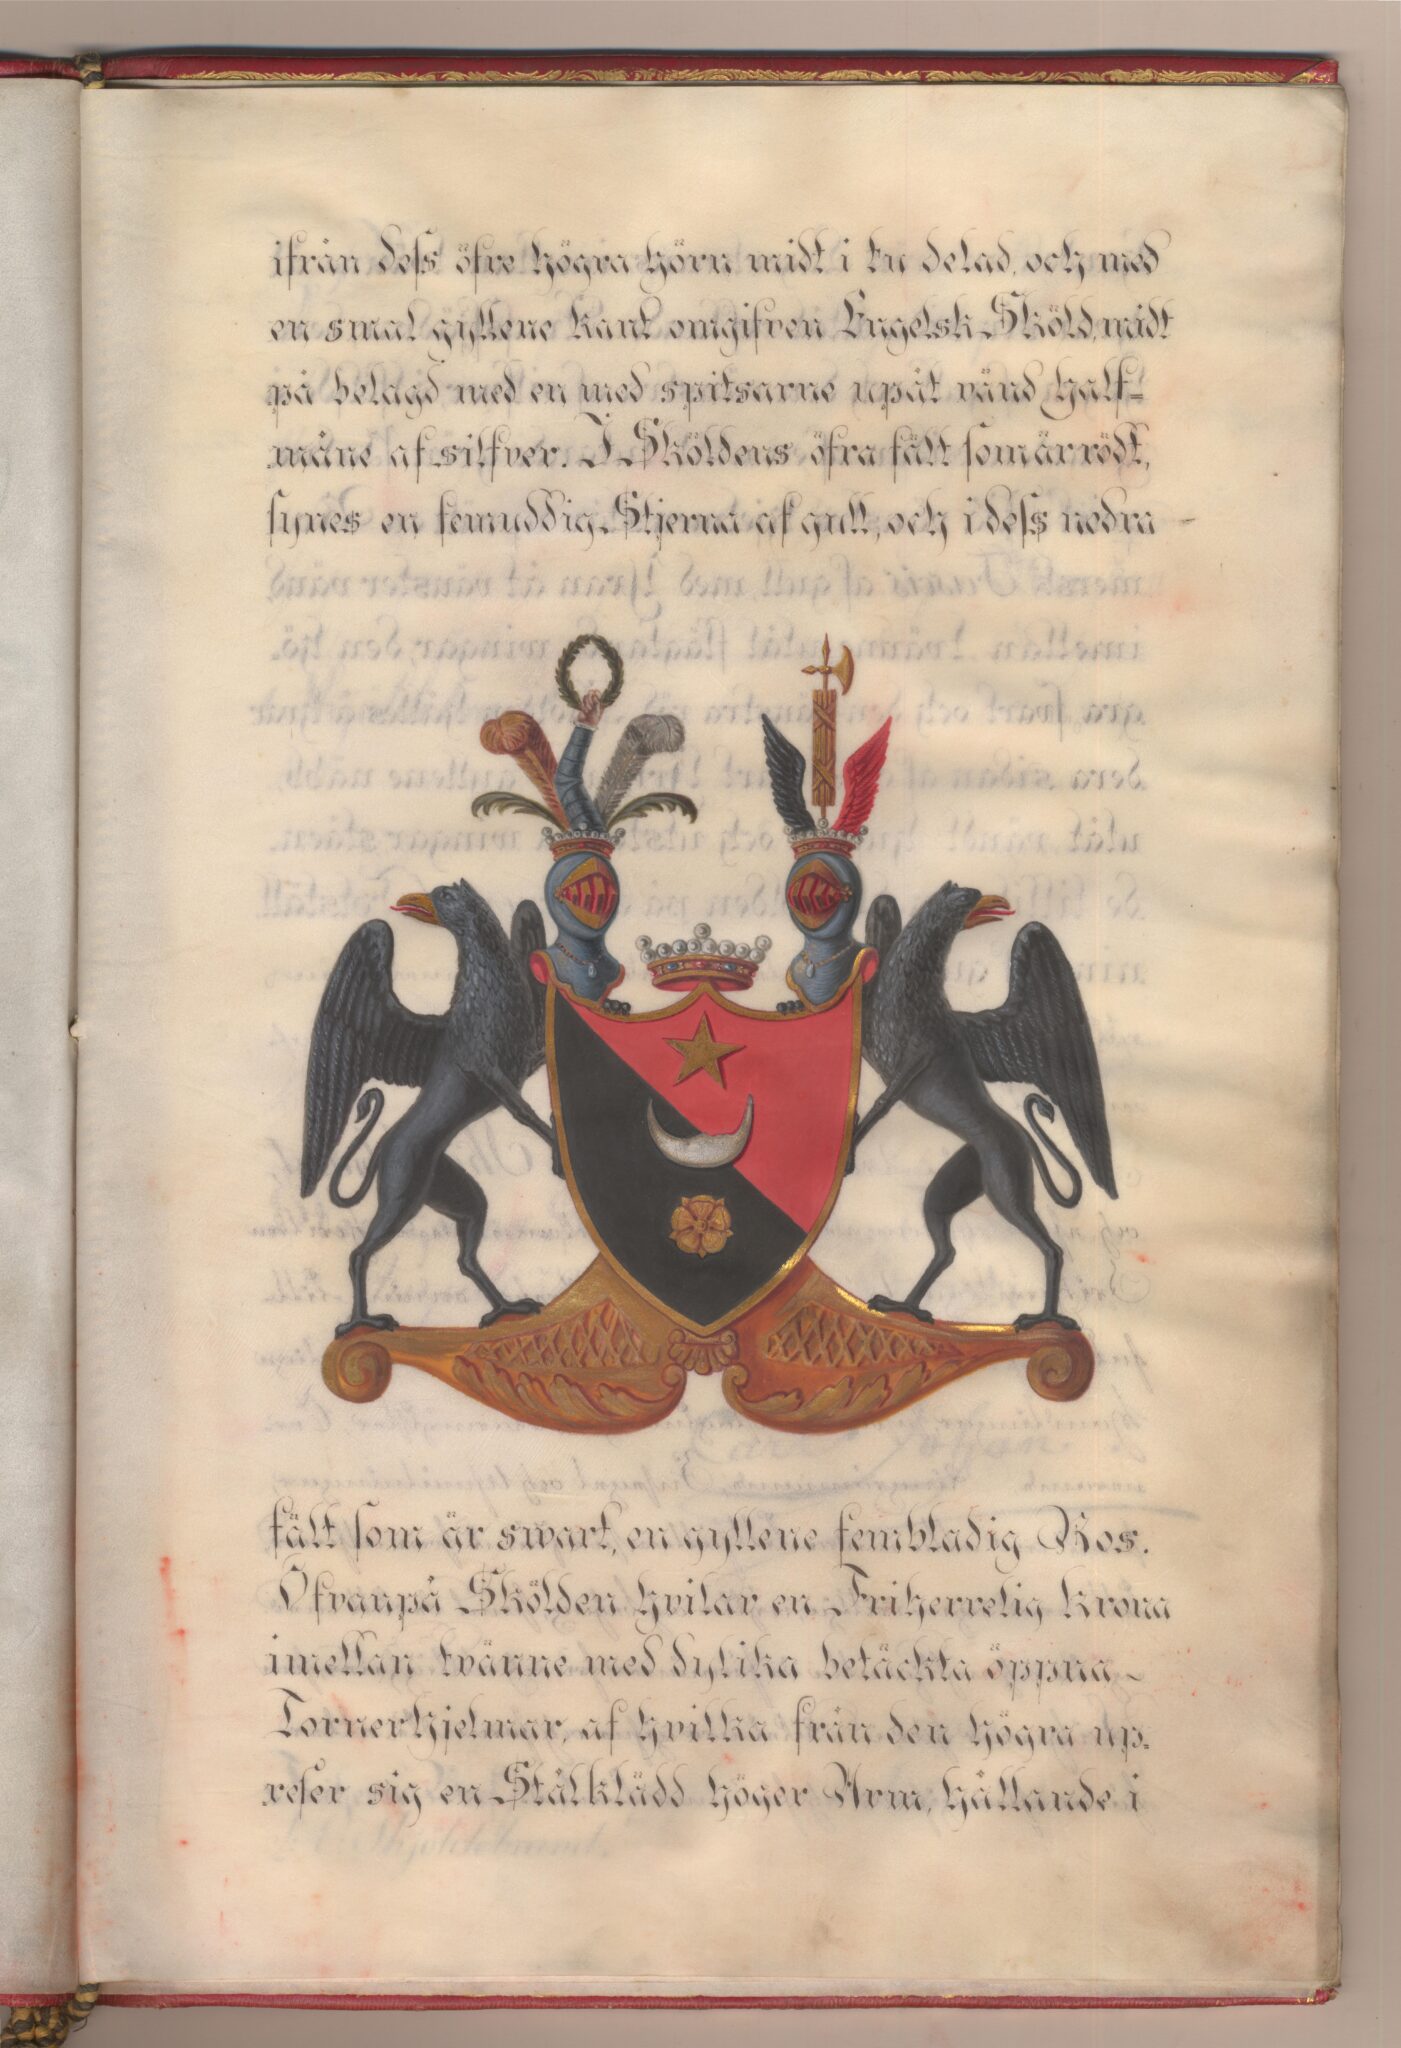 ifrån dess öfre högra hörn midt i tu delad, och med
en smal gyllene kant omgifven Engelsk Sköld, midt
på belagd med en med spitsarne upåt vänd half-
måne af silfver. I Sköldens öfra fält som är rödt,
synes en femuddig Stjerna af gull, och i dess nedra
fält som är swart, en gyllene fembladig Ros.
Ofvanpå Skölden hvilar en Friherrelig Krona
imellan tvänne med dylika betäckta öppna
Tornerhjelmar, af hvilka från den högra up-
reser sig en Stålklädd höger Arm, hållande i